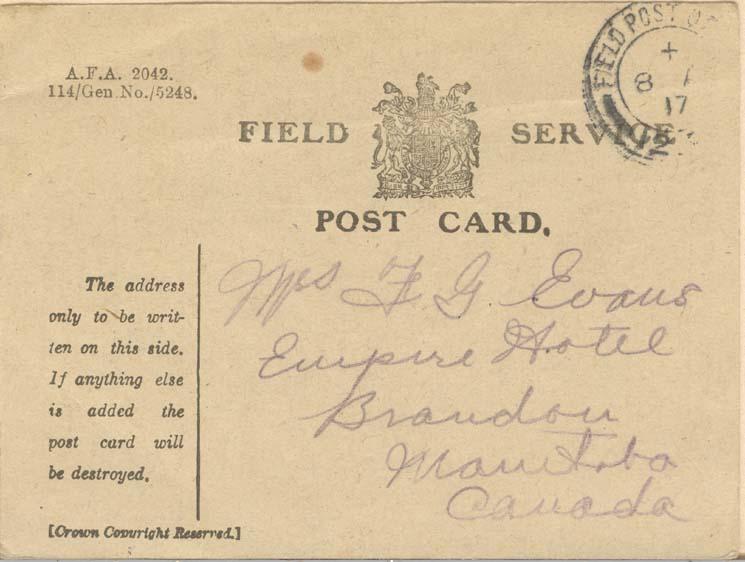 A.F.A. 2042.
114/Gen No./5248.
FIELD POST
+
8
17
FIELD SERVICE
POST CARD.
The address
only to be writ-
ten on this side.
If anything else
is added the
post card will
be destroyed.
[Crown Copyright Reserved.]
Mrs F G Evans
Empire Hotel
Brandon
Manitoba
Canada